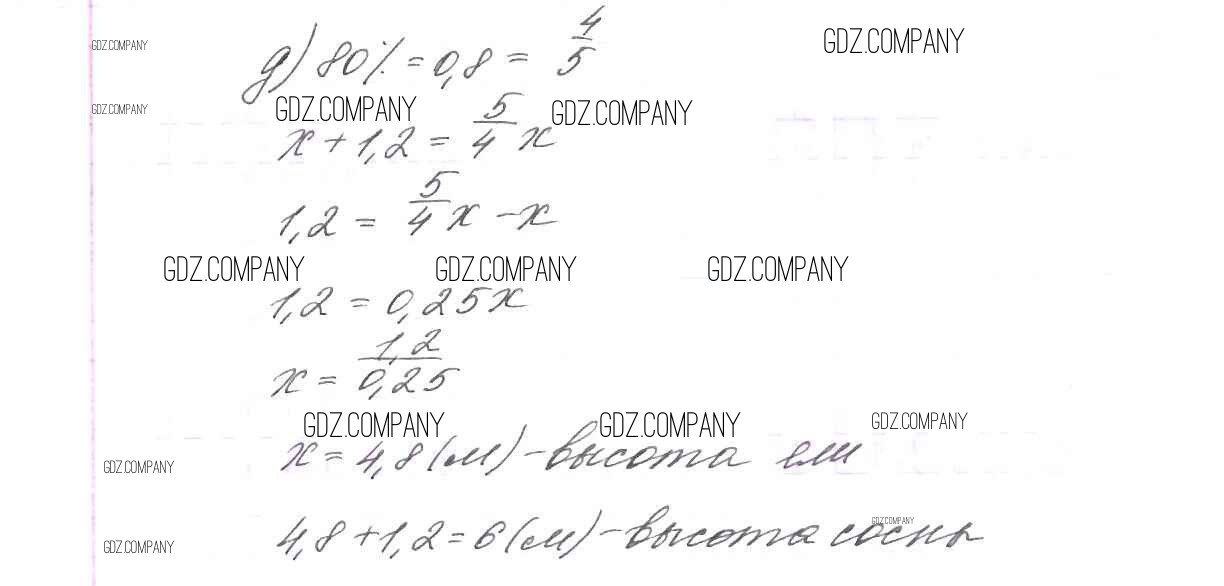 GDZ.COMPANY
д) 80% = 0,8 = 4/5
GDZ.COMPANY
GDZ.COMPANY
GDZ.COMPANY GDZ.COMPANY
x + 1,2 = 5/4 x
1,2 = 5/4 x - x
GDZ.COMPANY GDZ.COMPANY GDZ.COMPANY
1,2 = 0,25x
x = 1,2/0,25
GDZ.COMPANY GDZ.COMPANY GDZ.COMPANY
GDZ.COMPANY
x = 4,8 (м) - высота ели
GDZ.COMPANY
GDZ.COMPANY
4,8 + 1,2 = 6 (м) - высота сосны